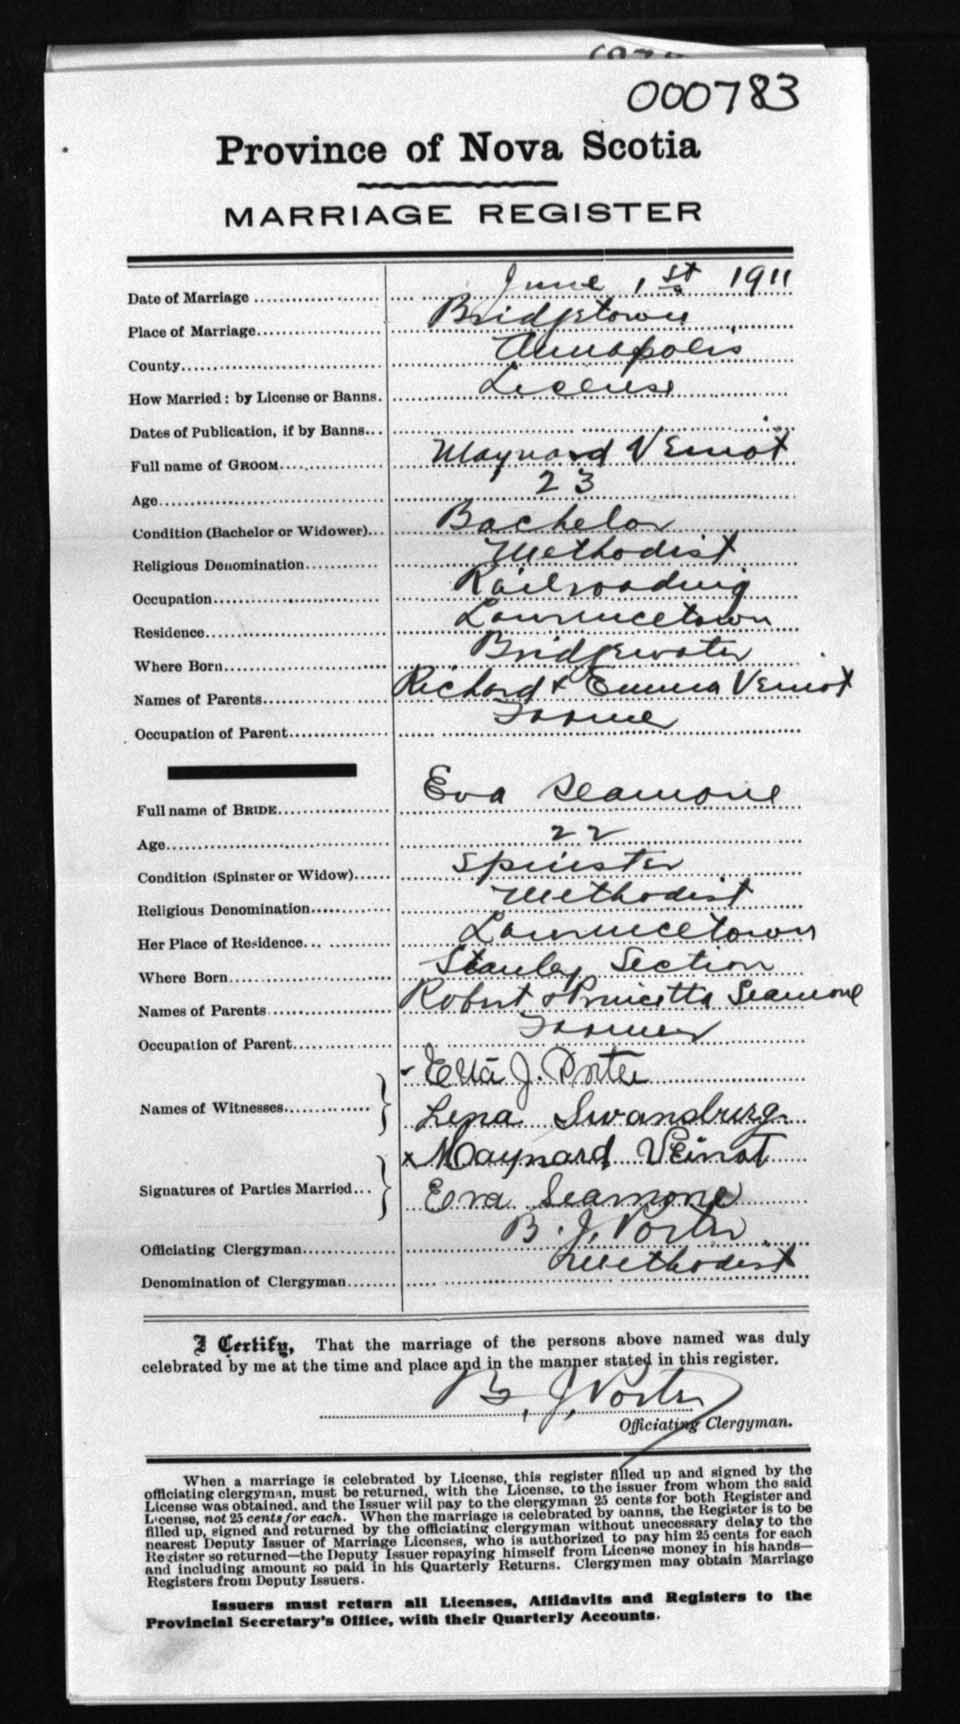 000783
Province of Nova Scotia
MARRIAGE REGISTER
Date of Marriage .................... June 1st 1911
Place of Marriage.................... Bridgetown
County.................... Annapolis
How Married: by License or Banns. License
Dates of Publication, if by Banns...
Full name of GROOM.................... Maynard Veinot
Age.................... 23
Condition (Bachelor or Widower)... Bachelor
Religious Denomination............ Methodist
Occupation.................... Railroading
Residence.................... Lawrencetown
Where Born.................... Bridgewater
Names of Parents.................... Richard & Emma Veinot
Occupation of Parent............... Farmer
Full name of BRIDE.................... Eva Seamone
Age.................... 22
Condition (Spinster or Widow)...... Spinster
Religious Denomination............ Methodist
Her Place of Residence... ........... Lawrencetown
Where Born.................... Stanley Section
Names of Parents.................... Robert & Seamone
Occupation of Parent............... Farmer
Names of Witnesses............... Etta J. Porter
Lena Swansburg
x Maynard Veinot
Signatures of Parties Married... Eva Seamone
Officiating Clergyman............... B. J. Porter
Denomination of Clergyman........ Methodist
I Certify, That the marriage of the persons above named was duly
celebrated by me at the time and place and in the manner stated in this register.
B. J. Porter
Officiating Clergyman.
When a marriage is celebrated by License, this register filled up and signed by the
officiating clergyman, must be returned, with the License, to the issuer from whom the said
License was obtained, and the Issuer will pay to the clergyman 25 cents for both Register and
License, not 25 cents for each. When the marriage is celebrated by banns, the Register is to be
filled up, signed and returned by the officiating clergyman without unnecessary delay to the
nearest Deputy Issuer of Marriage Licenses, who is authorized to pay him 25 cents for each
Register so returned—the Deputy Issuer repaying himself from License money in his hands—
and including amount so paid in his Quarterly Returns. Clergymen may obtain Marriage
Registers from Deputy Issuers.
Issuers must return all Licenses, Affidavits and Registers to the
Provincial Secretary's Office, with their Quarterly Accounts.